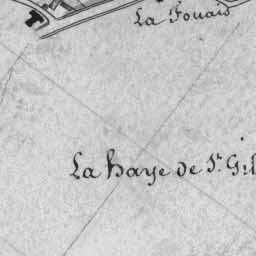 La Fouais
La haye de S.t Gil